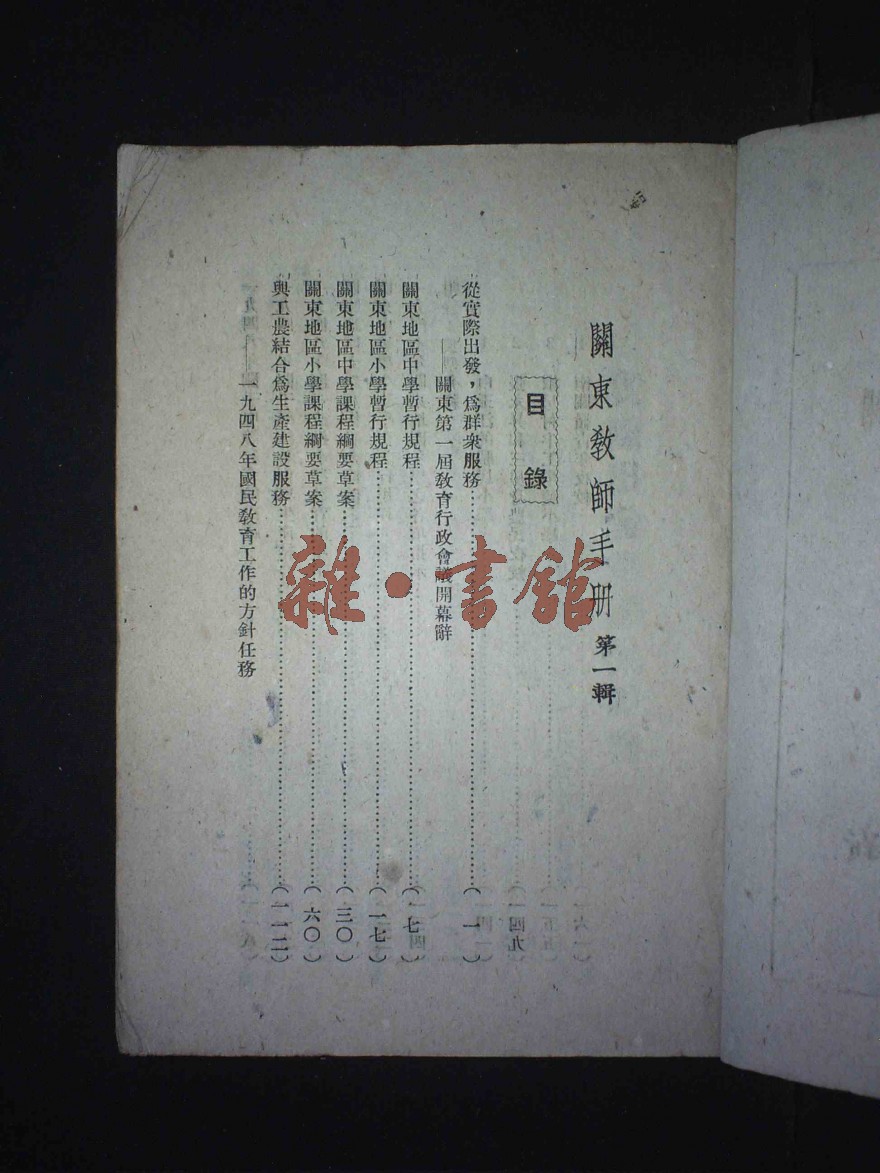 關東教師手册 第一輯
目錄
從實際出發，爲群衆服務……（一）
——關東第一屆教育行政會議開幕辭
關東地區中學暫行規程……（七）
關東地區小學暫行規程……（一七）
關東地區中學課程綱要草案……（三〇）
關東地區小學課程綱要草案……（六〇）
與工農結合爲生產建設服務……（一一二）
——一九四八年國民教育工作的方針任務
雜·書館